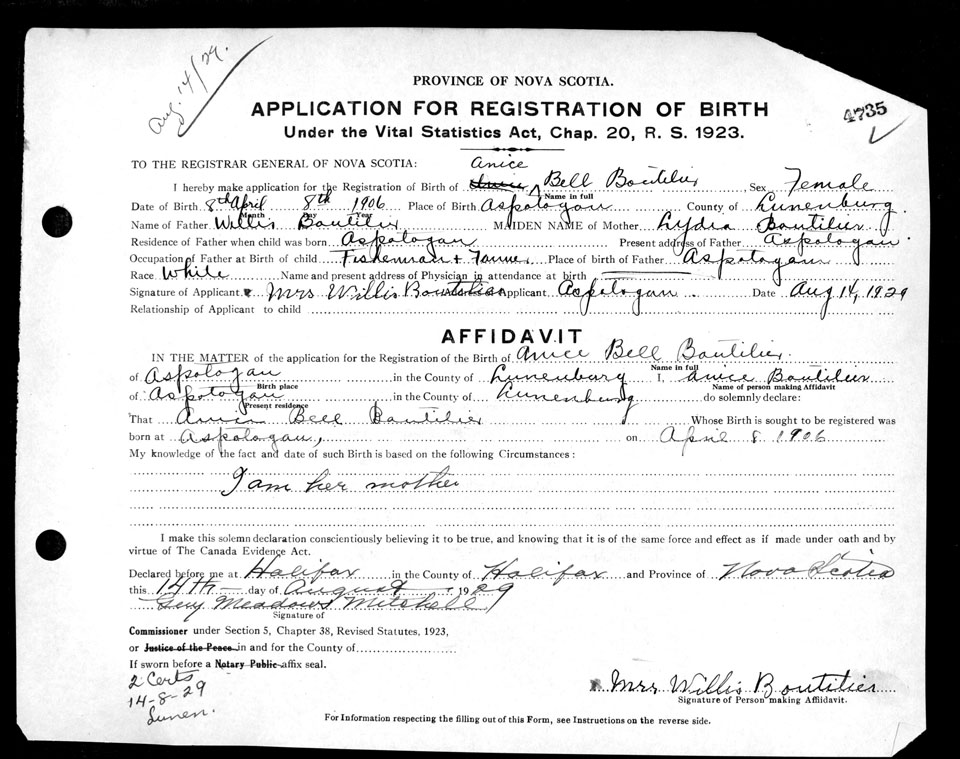 Aug. 14/29.
PROVINCE OF NOVA SCOTIA.
APPLICATION FOR REGISTRATION OF BIRTH
4735
Under the Vital Statistics Act, Chap. 20, R. S. 1923.
TO THE REGISTRAR GENERAL OF NOVA SCOTIA:
Anice
I hereby make application for the Registration of Birth of Bell Boutilier Sex Female
Name in full
Date of Birth 8th April 8th 1906 Place of Birth Aspotogan County of Lunenburg.
Month Day Year
Name of Father Willis Boutilier MAIDEN NAME of Mother Lydia Boutilier
Residence of Father when child was born Aspotogan Present address of Father Aspotogan
Occupation of Father at Birth of child Fisherman + Farmer Place of birth of Father Aspotogan
Race White Name and present address of Physician in attendance at birth
Signature of Applicant Mrs Willis Boutilier Applicant Aspotogan. Date Aug 14, 1929
Relationship of Applicant to child
AFFIDAVIT
IN THE MATTER of the application for the Registration of the Birth of Anice Bell Boutilier.
Name in full
of Aspotogan in the County of Lunenburg I, Anice Boutilier
Birth place Name of person making Affidavit
of Aspotogan in the County of Lunenburg do solemnly declare:
Present residence
That Anice Bell Boutilier Whose Birth is sought to be registered was
born at Aspotogan, on April 8 1906
My knowledge of the fact and date of such Birth is based on the following Circumstances:
I am her mother
I make this solemn declaration conscientiously believing it to be true, and knowing that it is of the same force and effect as if made under oath and by
virtue of The Canada Evidence Act.
Declared before me at Halifax in the County of Halifax and Province of Nova Scotia
this 14th day of August 1929
Guy Meadows Mitchell
Signature of
Commissioner under Section 5, Chapter 38, Revised Statutes, 1923,
or Justice of the Peace in and for the County of
If sworn before a Notary Public affix seal.
2 Certs
14-8-29
Lunen.
Mrs Willis Boutilier
Signature of Person making Affidavit.
For Information respecting the filling out of this Form, see Instructions on the reverse side.